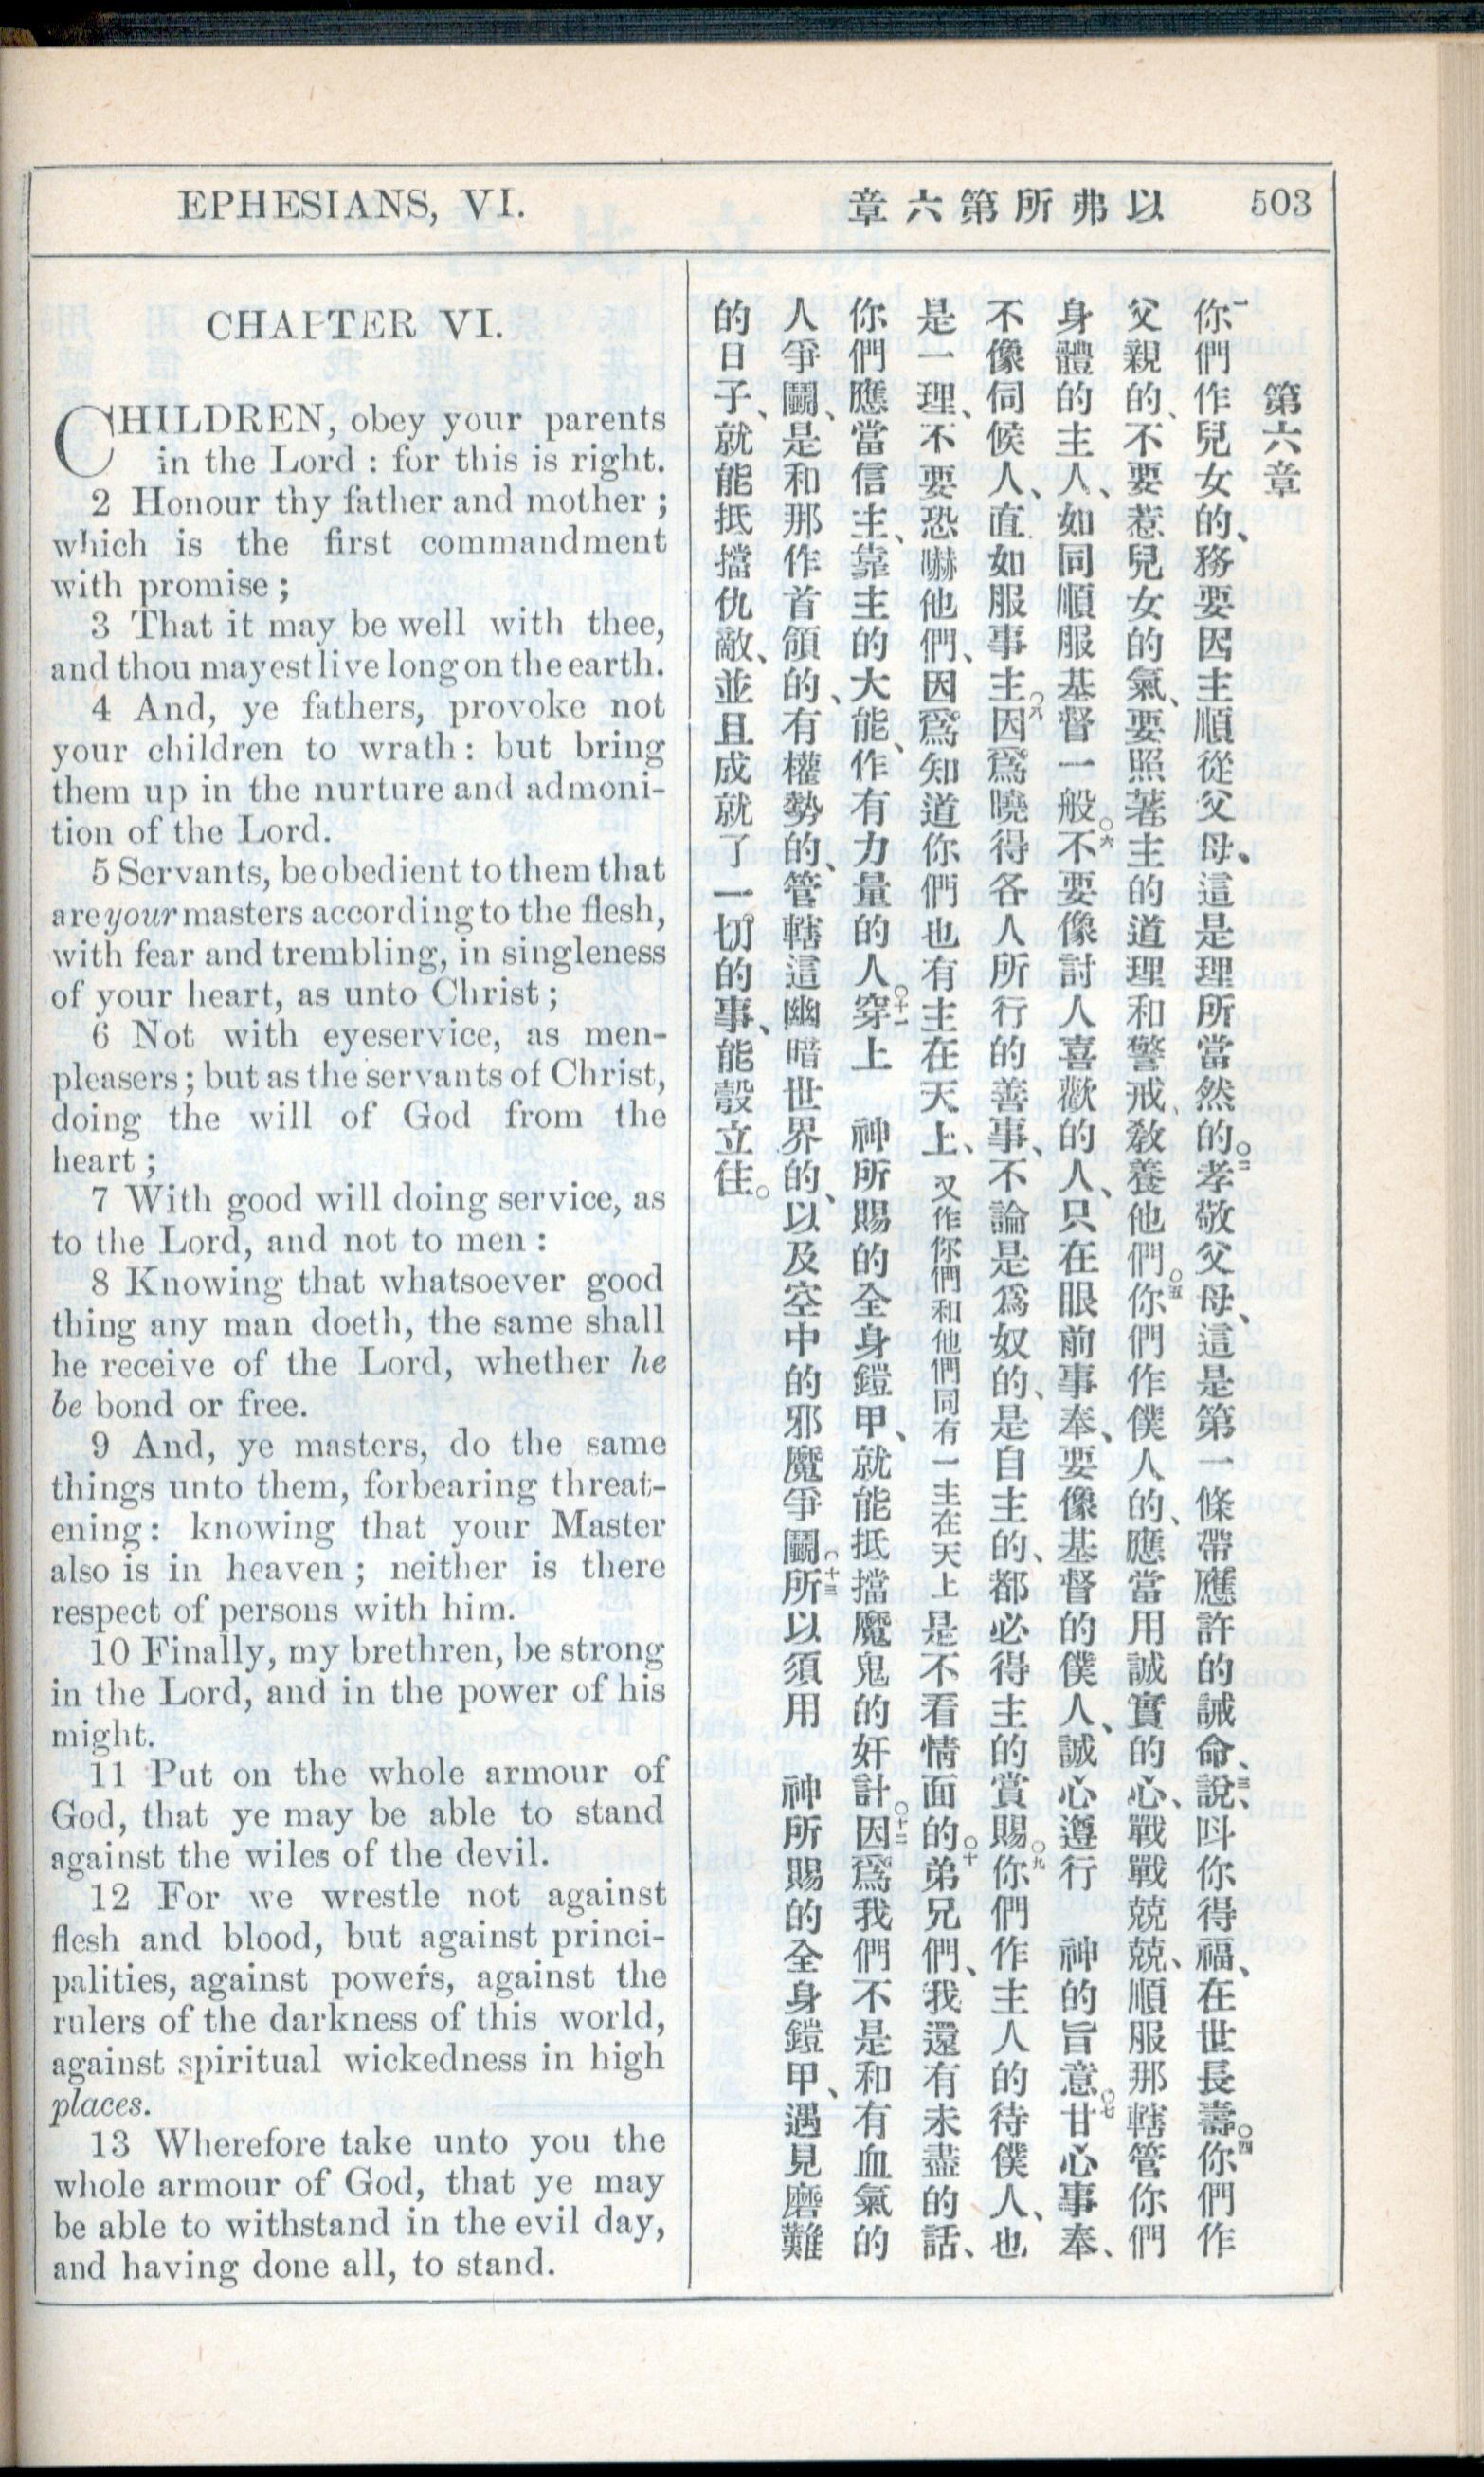 EPHESIANS, VI.
章六第所弗以
503
CHAPTER VI.
CHILDREN, obey your parents
in the Lord : for this is right.
2 Honour thy father and mother ;
which is the first commandment
with promise ;
3 That it may be well with thee,
and thou mayest live long on the earth.
4 And, ye fathers, provoke not
your children to wrath : but bring
them up in the nurture and admoni-
tion of the Lord.
5 Servants, be obedient to them that
are your masters according to the flesh,
with fear and trembling, in singleness
of your heart, as unto Christ ;
6 Not with eyeservice, as men-
pleasers ; but as the servants of Christ,
doing the will of God from the
heart ;
7 With good will doing service, as
to the Lord, and not to men :
8 Knowing that whatsoever good
thing any man doeth, the same shall
he receive of the Lord, whether he
be bond or free.
9 And, ye masters, do the same
things unto them, forbearing threat-
ening : knowing that your Master
also is in heaven ; neither is there
respect of persons with him.
10 Finally, my brethren, be strong
in the Lord, and in the power of his
might.
11 Put on the whole armour of
God, that ye may be able to stand
against the wiles of the devil.
12 For we wrestle not against
flesh and blood, but against princi-
palities, against powers, against the
rulers of the darkness of this world,
against spiritual wickedness in high
places.
13 Wherefore take unto you the
whole armour of God, that ye may
be able to withstand in the evil day,
and having done all, to stand.
第六章
一你們作兒女的、務要因主順從父母、這是理所當然的。○二孝敬父母、這是第一條帶應許的誡命、三說、呌你得福、在世長壽。○四你們作
父親的、不要惹兒女的氣、要照著主的道理和警戒、敎養他們。○五你們作僕人的、應當用誠實的心、戰戰兢兢、順服那轄管你們
身體的主人、如同順服基督一般。○六不要像討人喜歡的人、只在眼前事奉、要像基督的僕人、誠心遵行 神的旨意。○七甘心事奉、
不像伺候人、直如服事主。○八因爲曉得各人所行的善事、不論是爲奴的、是自主的、都必得主的賞賜。○九你們作主人的待僕人、也
是一理、不要恐嚇他們、因爲知道你們也有主在天上、又作你們和他們同有一主在天上是不看情面的。○十弟兄們、我還有未盡的話、
你們應當信主、靠主的大能、作有力量的人。○十一穿上 神所賜的全身鎧甲、就能抵擋魔鬼的奸計。○十二因爲我們不是和有血氣的
人爭鬬、是和那作首領的、有權勢的、管轄這幽暗世界的、以及空中的邪魔爭鬬。○十三所以須用 神所賜的全身鎧甲、遇見磨難
的日子、就能抵擋仇敵、並且成就了一切的事、能彀立住。